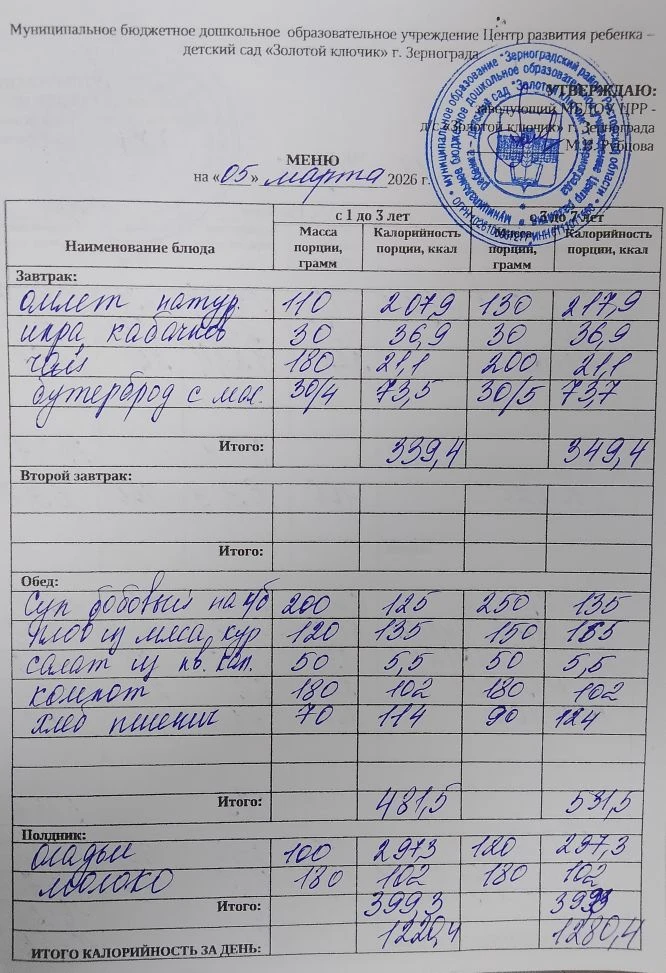 Муниципальное бюджетное дошкольное образовательное учреждение Центр развития ребенка –
детский сад «Золотой ключик» г. Зернограда
УТВЕРЖДАЮ:
заведующий МБДОУ ЦРР -
д/с «Золотой ключик» г. Зернограда
МЕНЮ
на «05» марта 2026 г.
Наименование блюда с 1 до 3 лет с 3 до 7 лет
Масса порции, грамм Калорийность порции, ккал Масса порции, грамм Калорийность порции, ккал
Завтрак:
омлет натур. 110 207,9 130 217,9
икра кабачков 30 36,9 30 36,9
чай 180 21,1 200 21,1
бутерброд с мас. 30/4 73,5 30/5 73,7
Итого: 339,4 349,4
Второй завтрак:
Итого:
Обед:
Суп бобовый на к/б 200 125 250 135
плов из мяса кур 120 135 150 165
салат из кв. кап. 50 5,5 50 5,5
компот 180 102 180 102
хлеб пшенич 70 114 90 124
Итого: 481,5 531,5
Полдник:
Оладьи 100 297,3 120 297,3
молоко 180 102 180 102
Итого: 399,3 399,3
ИТОГО КАЛОРИЙНОСТЬ ЗА ДЕНЬ: 1220,4 1280,4